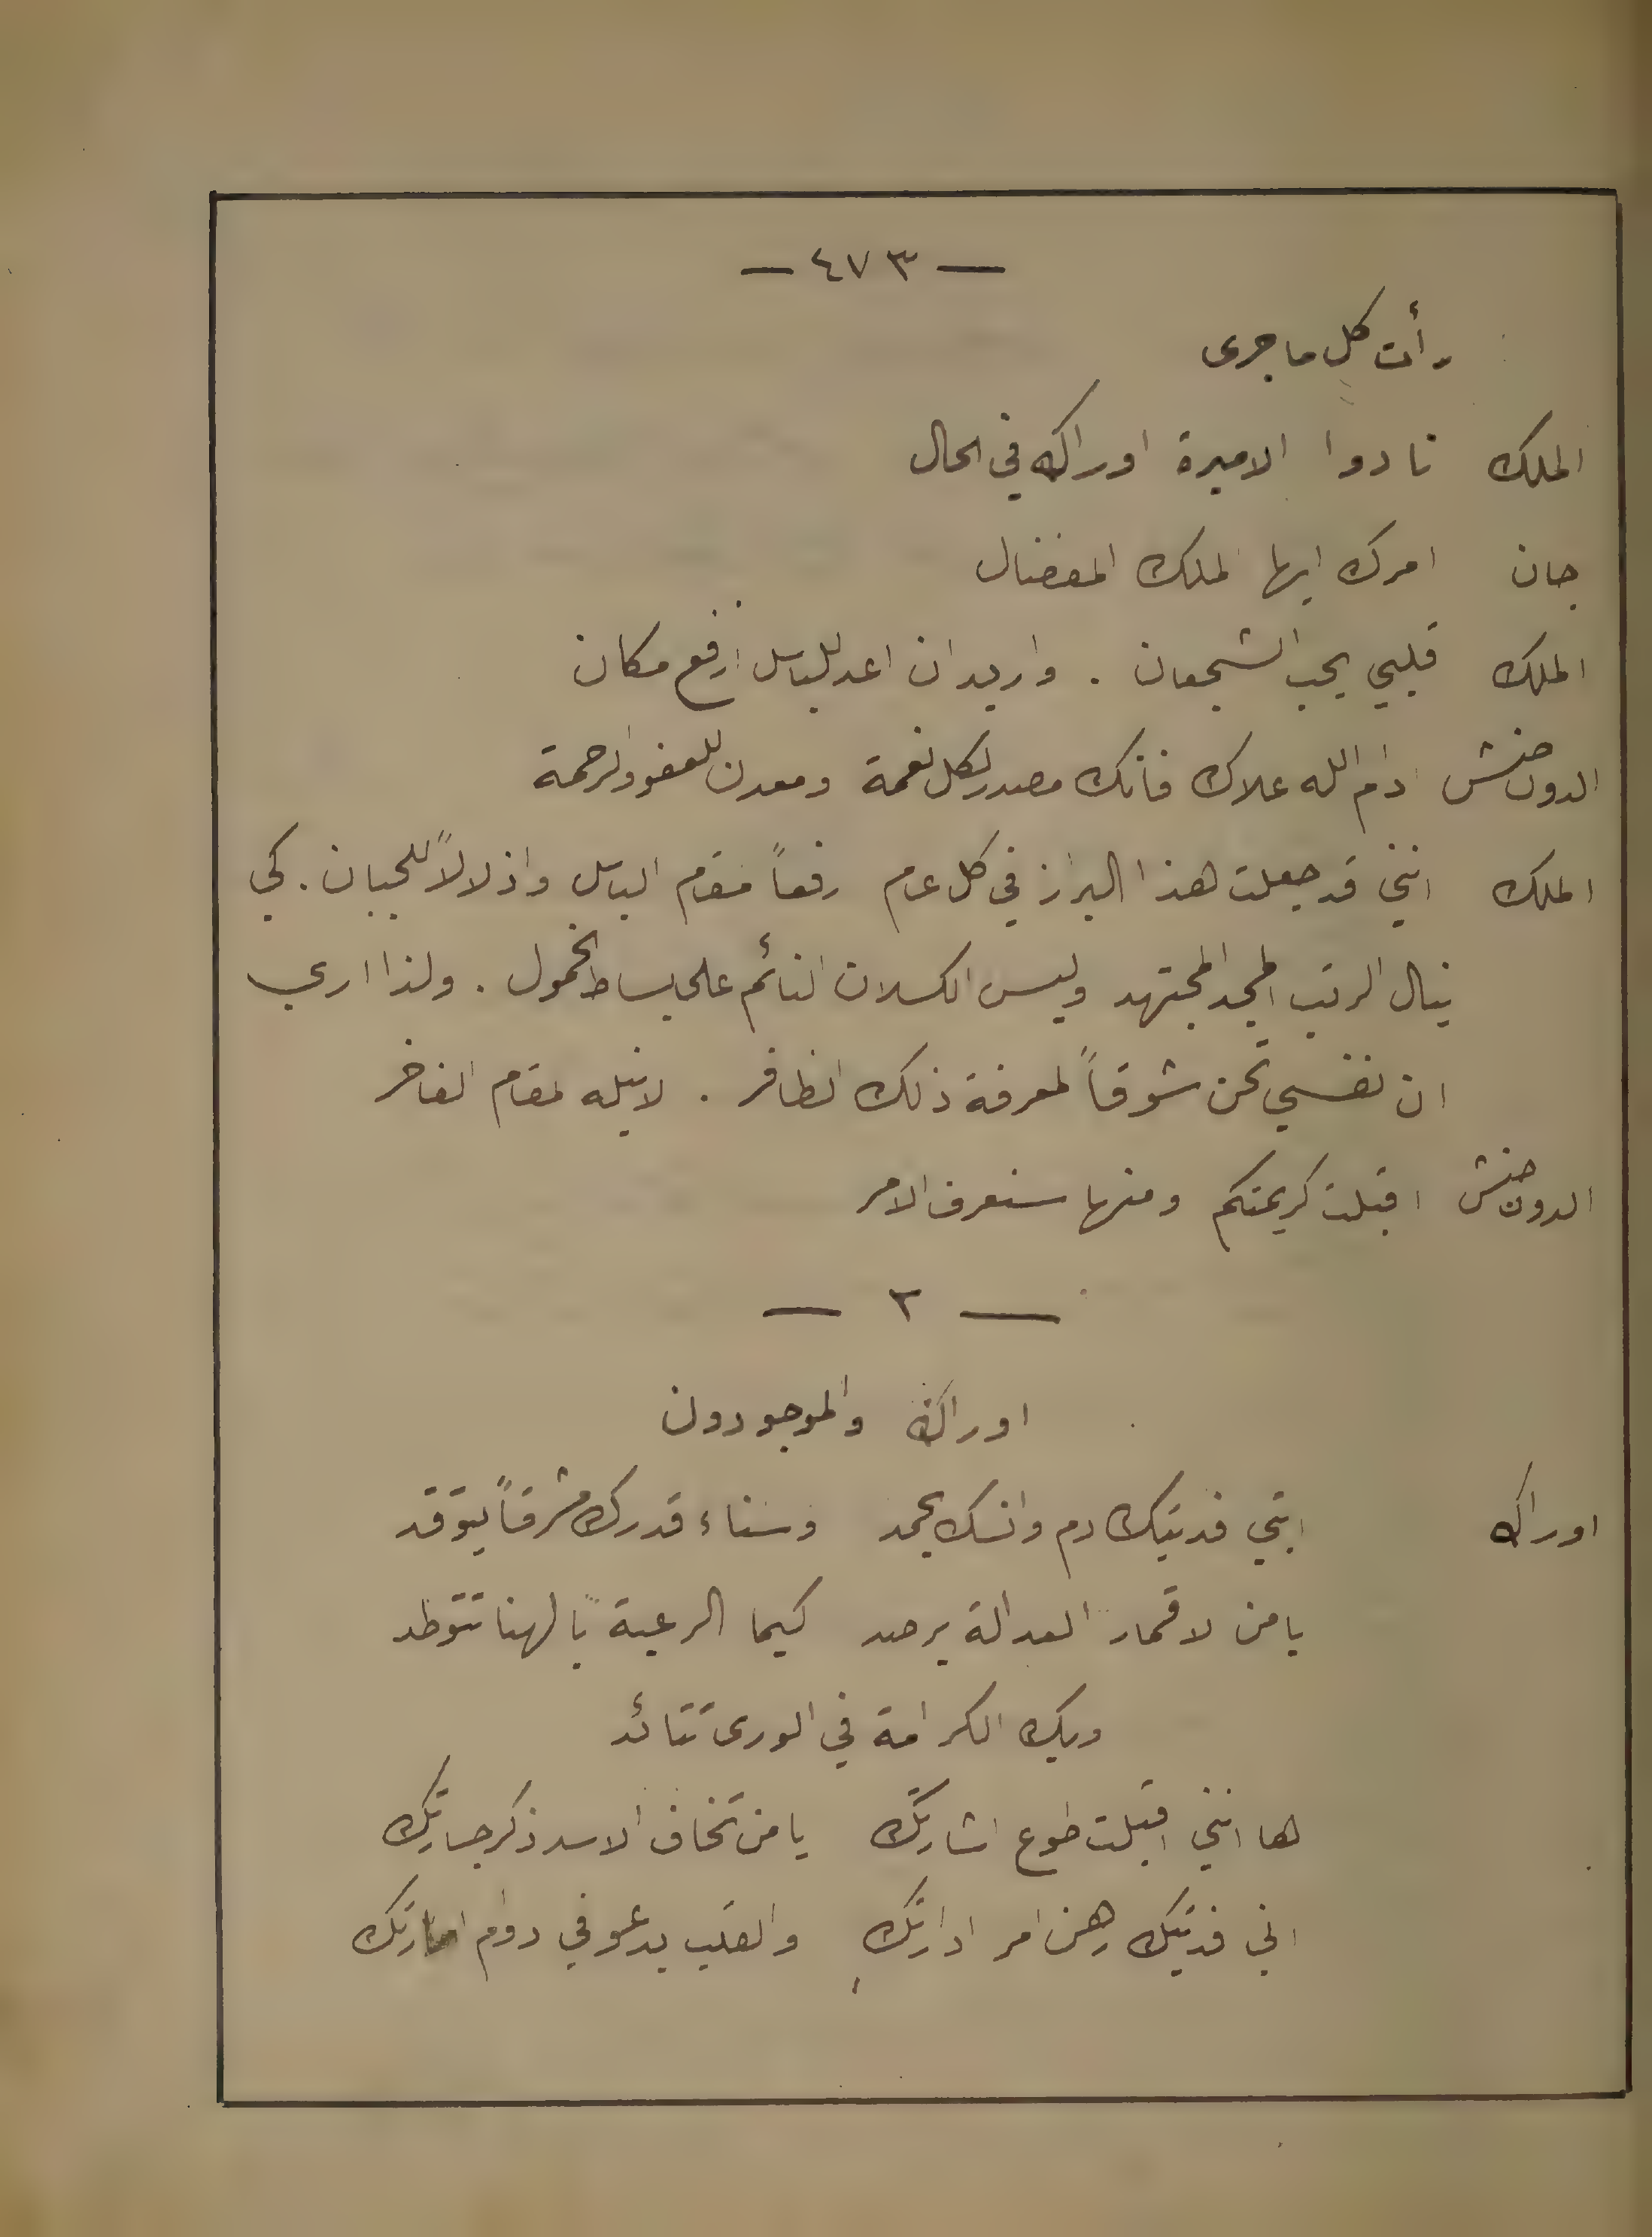 — ٤٧٣ —
رأت كل ما جرى
الملك نادوا الاميرة اوراكه في الحال
جان امرك ايها الملك المفضال
الملك قلبي يحب الشجعان . واريد ان اعد للباسل ارفع مكان
الدون صنش ادام الله علاك فانك مصدر لكل نعمة ومعدن للعفو والرحمة
الملك انني قد جعلت هذا البراز في كل عام رفعاً مقام الباسل واذلالاً للجبان . كي
ينال الرتب المجد المجتهد وليس الكسلان النائم على بساط الخمول . ولذا ارى
ان نفسي تحن شوقاً لمعرفة ذلك الظافر . لانيله المقام الفاخر
الدون صنش اقبلت كريمتكم ومنها سنعرف الامر
— ٢ —
اوراكه والموجودون
اوراكه ابتي فديتك دم وانسك يحمد وسناء قدرك مشرقاً يتوقد
يا من لاقمار العدالة يرصد كيما الرعية بالهنا تتوطد
وبك الكرامة في الورى تتائد
ها انني اقبلت طوع اشارتك يا من تخاف الاسد ذكر جسارتك
اني فديتك رهن امر ادارتك والقلب يدعو في دوام امارتك